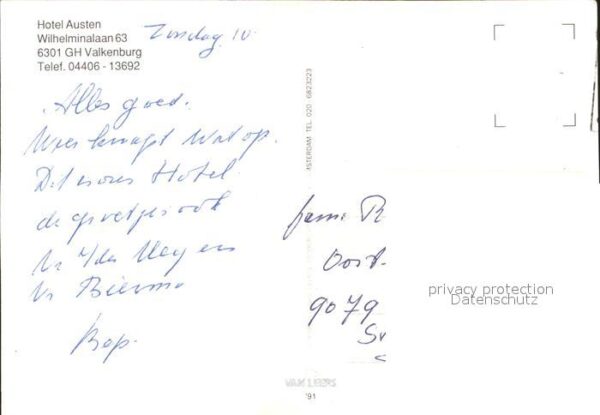 Hotel Austen
Wilhelminalaan 63
6301 GH Valkenburg
Telef. 04406 - 13692
Zondag 10
Alles goed.
Weer knapt wat op.
Dit is ons Hotel
de groetjes ook
v/der
Bierma
Bop.
AMSTERDAM TEL. 020 6823223
fam.
Oost-
9079
privacy protection
Datenschutz
VAN LEERS
'91